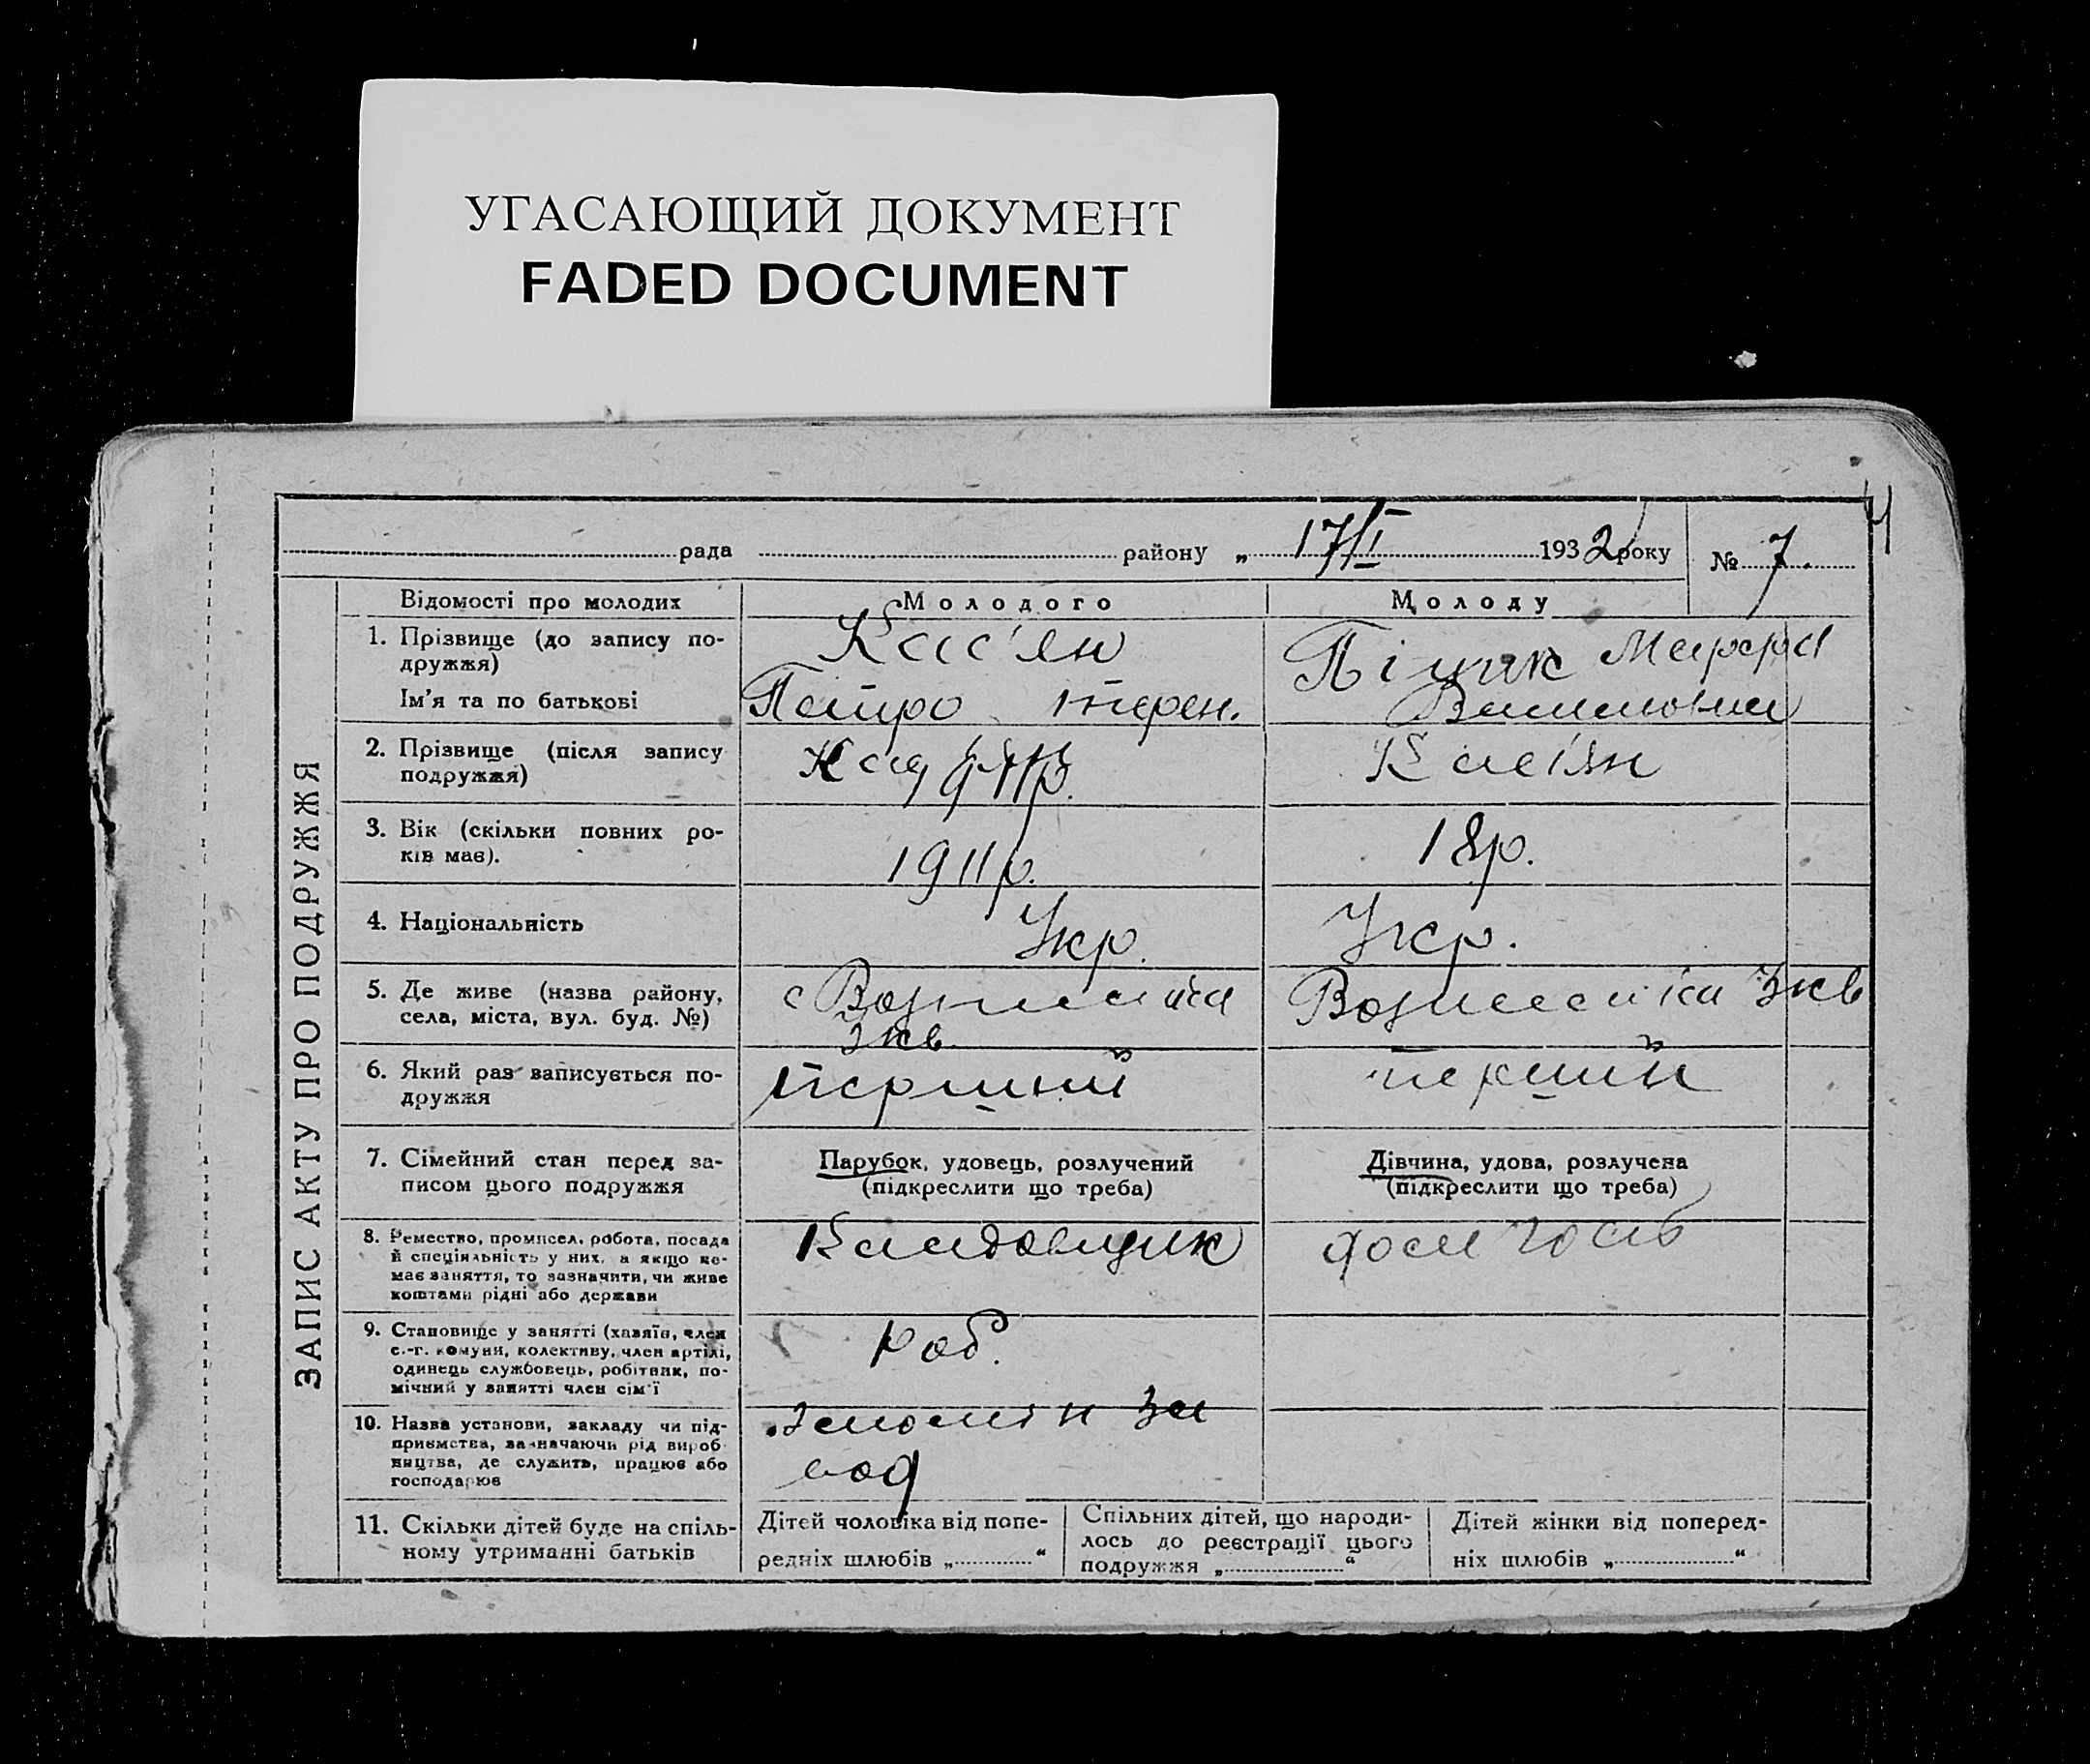 УГАСАЮЩИЙ ДОКУМЕНТ
FADED DOCUMENT
4
рада району „ 17/I 1932 року № 7.
ЗАПИС АКТУ ПРО ПОДРУЖЖЯ
Відомості про молодих Молодого Молоду
1. Прізвище (до запису по-
дружжя)
Ім'я та по батькові
Кас'ян
Петро терен.
Піцик Марфа
2. Прізвище (після запису
подружжя)
Кас'ян
3. Вік (скільки повних ро-
ків має).
1911р.
18р.
4. Національність
Укр.
Укр.
5. Де живе (назва району,
села, міста, вул. буд. №)
с Вознесенка
Вознесенка
6. Який раз записується по-
дружжя
перший
перший
7. Сімейний стан перед за-
писом цього подружжя
Парубок, удовець, розлучений
(підкреслити що треба)
Дівчина, удова, розлучена
(підкреслити що треба)
8. Ремество, промисел, робота, посада
й спеціяльність у них, а якщо не-
має заняття, то зазначити, чи живе
коштами рідні або держави
Кладовщик
дом госп
9. Становище у занятті (хазяїн, член
с.-г. комуни, колективу, член артілі,
одинець службовець, робітник, по-
мічний у занятті член сім'ї
Роб.
10. Назва установи, закладу чи під-
приємства, зазначаючи рід вироб-
ництва, де служить, працює або
господарює
за
вод
11. Скільки дітей буде на спіль-
ному утриманні батьків
Дітей чоловіка від попе-
редніх шлюбів „ “
Спільних дітей, що народи-
лось до реєстрації цього
подружжя „ “
Дітей жінки від поперед-
ніх шлюбів „ “